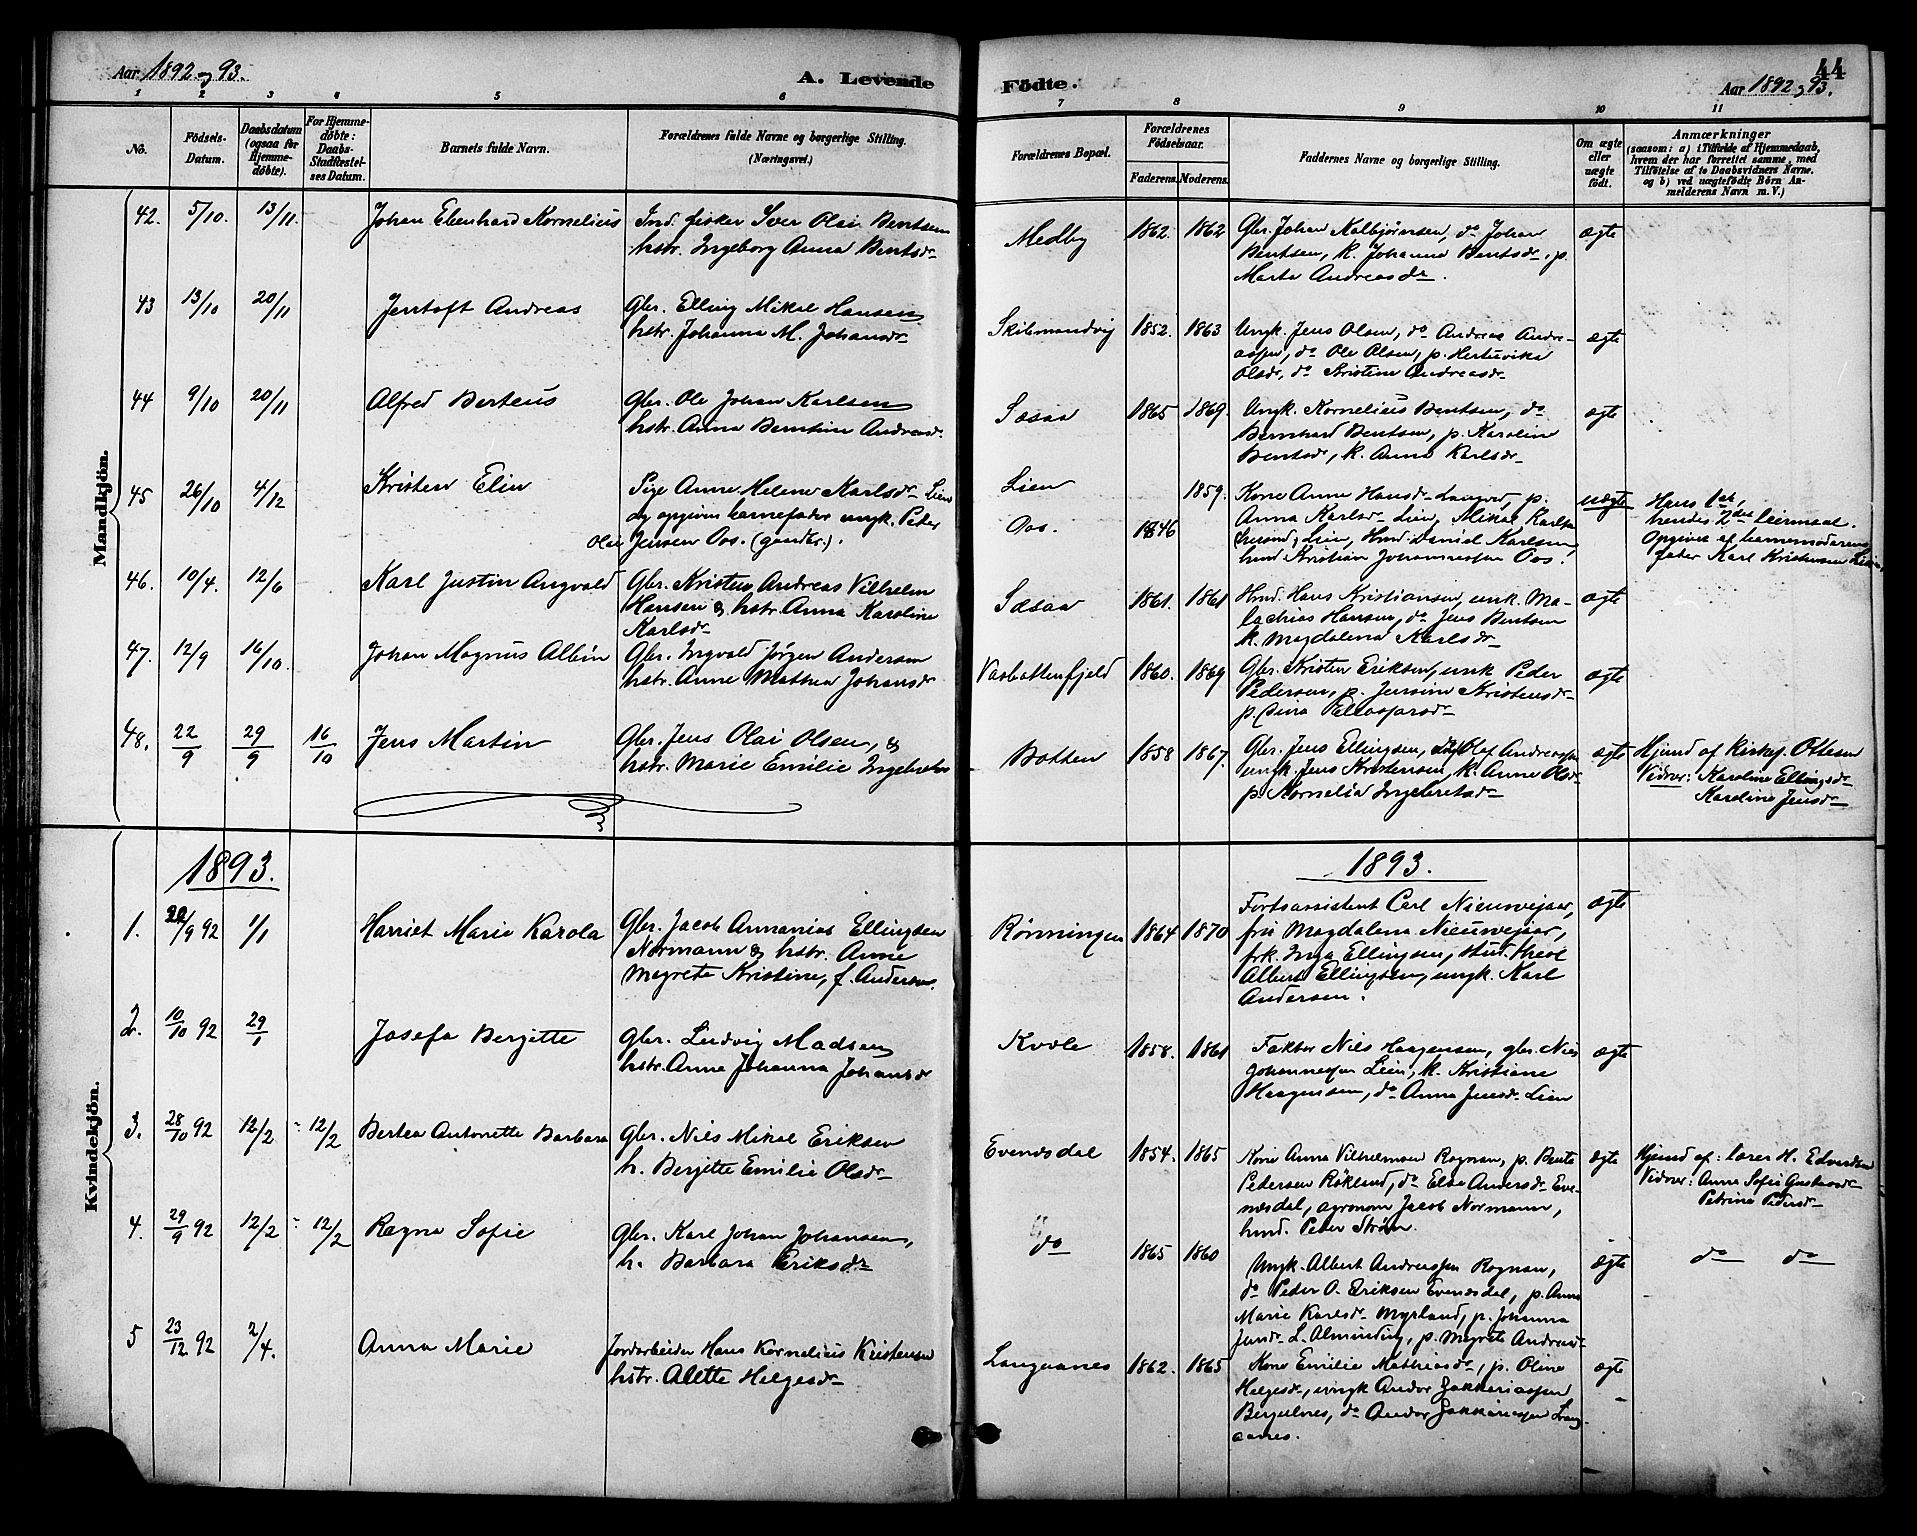 Aar 1892 og 93.
A. Levende
Födte.
44
Aar 1892 og 93.
1 2 3 4 5 6 7 8 9 10 11
No.
Födsels-Datum.
Daabsdatum (ogsaa for Hjemme-döbte).
For Hjemme-döbte: Daabs-Stadfæstel-ses Datum.
Barnets fulde Navn.
Forældrenes fulde Navne og borgerlige Stilling. (Næringsvei.)
Forældrenes Bopæl.
Forældrenes Födselsaar.
Faderens. Moderens.
Faddernes Navne og borgerlige Stilling.
Om ægte eller uægte födt.
Anmærkninger
(saasom: a) i Tilfælde af Hjemmedaab, hvem der har forrettet samme, med Tilföielse af to Daabsvidners Navne. og b) ved uægtefödte Börn An-melderens Navn m. V.)
Mandkjön.
42. 5/10. 13/11. Johan Eberhard Kornelius
Ind. fisker Iver Olai Bentsen
hstr. Ingeborg Anna Bentsdr
Medby 1862. 1862
Gbr. Johan Kalbjørnsen, do Johan
Bentsen, K. Johanna Bentsdr, p.
Marta Andreasdr.
ægte
43 13/10 20/11 Jentoft Andreas
Gbr. Elling Mikal Hansen
hstr. Johanna M. Johansdr
Skibmandvig 1852. 1863
Ungk. Jens Olsen, do Andreas Andre-
assen, do Ole Olsen, p. Hertuvika
Olsdr, do Kristine Andreasdr
ægte
44 9/10 20/11 Alfred Berteus
Gbr. Ole Johan Karlsen
hstr. Anna Berntine Andreasdr.
Sæsaa 1865 1869.
Ungk. Kornelius Bentsen, do
Bernhard Bentsen, p. Karoline
Bentsdr, K. Anna Karlsdr
ægte
45 26/10 4/12 Kristen Elin
Pige Anne Helene Karlsdr Lien
og opgiven barnefader ungk. Peder
Olai Jensen Oos. (gaardbr.).
Lien 1859.
Oos. 1846
Kone Anne Hansdr p.
Anna Karlsdr Lien, Mikal Karlsen
Lien, Hmd. Daniel Karlsen,
hmd Kristian Johannessen Oos.
uægte
Hans 1ste,
hendes 2det leiermaal.
Opgivet af barnemoderens
fader Karl Kristensen Lien
46. 10/4. 12/6 Karl Justin Angvald
Gbr. Kristen Andreas Vilhelm
Hansen & hstr. Anna Karoline
Karlsdr
Sæsaa 1861. 1861
Hmd. Hans Kristiansen, unk. Ma-
lachias Hansen, do Jens Bentsen
K. Magdalena Karlsdr
ægte
47. 12/9 16/10. Johan Magnus Albin
Gbr. Ingvald Jørgen Andersen
hstr. Anne Mathea Johansdr
Vasbottenfjeld 1860. 1869
Gbr. Kristen Eriksen, unk Peder
Pedersen, p. Jensine Kristensdr
p. Sina Eliassarsdr
ægte
48. 22/9 29/9 16/10 Jens Martin
Gbr. Jens Olai Olsen, &
hstr. Marie Emilie Ingebretsdr
Botten 1858 1867.
Gbr. Jens Ellingsen, Olaf Andreassen
ungk. Jens Kristensen, K. Anne Olsdr
p. Kornelia Ingebretsdr
ægte
Hjemd af Kirkes. Ottesen
Vidner: Karoline Ellingsdr
Karoline Jensdr
Kvindekjön.
1893.
1893.
1. 22/9 92 1/1 Harriet Marie Karola
Gbr. Jacob Annanias Ellingsen
Normann & hstr. Anne
Megrete Kristine, f. Andersen.
Rønningen 1864 1870
Fortsassistent Carl Nieuwejaar,
fru Magdalena Nieuwejaar,
frk. Inga Ellingsen, stud. theol
Albert Ellingsen, ungk. Karl
Andersen.
ægte
2. 10/10 92 29/1 Josefa Bergitte
Gbr. Ludvig Madsen
hstr. Anne Johanna Johansdr
Kvæle 1858. 1861
Faktor Nils Haagensen, gbr. Nils
Johannessen Lien, K. Kristiane
Haagensen, do Anna Jensdr Lien
ægte
3. 28/10 92 12/2 12/2 Bertea Antonette Barbara
Gbr. Nils Mikal Eriksen
h. Bergitte Emilie Olsdr
Evenesdal 1854. 1865
Kone Anna Vilhelmsen Rognan, p. Bente
Petersen Røklund, do Elen Andersdr Eve-
nesdal, agronom Jacob Normann,
hmd. Peter Strøm.
ægte
Hjemd af: lærer H. Edvardsen
Vidner: Anne Sofie Gustavsdr
Petrine Pedersdr
4. 29/9 92 12/2 12/2 Ragna Sofie
Gbr. Karl Johan Johansen,
h. Barbara Eriksdr
do 1865 1860
Ungk. Albert Andreassen Rognan,
do Peder O. Eriksen Evenesdal, p. Anna
Marie Karlsdr Myrland, p. Johanna
Jensdr L. Alminding, p. Megrete Andreasdr
ægte
do do
5 23/12 92 2/4. Anna Marie
Jordarbeider Hans Kornelius Kristensen
hstr. Alette Helgesdr
Langaanes 1862. 1865
Kone Emilie Mathiasdr, p. Oline
Helgesdr, ungk Andor Zakkariassen
Bergulnes, do Andor Zakkariassen Lang-
aanes.
ægte